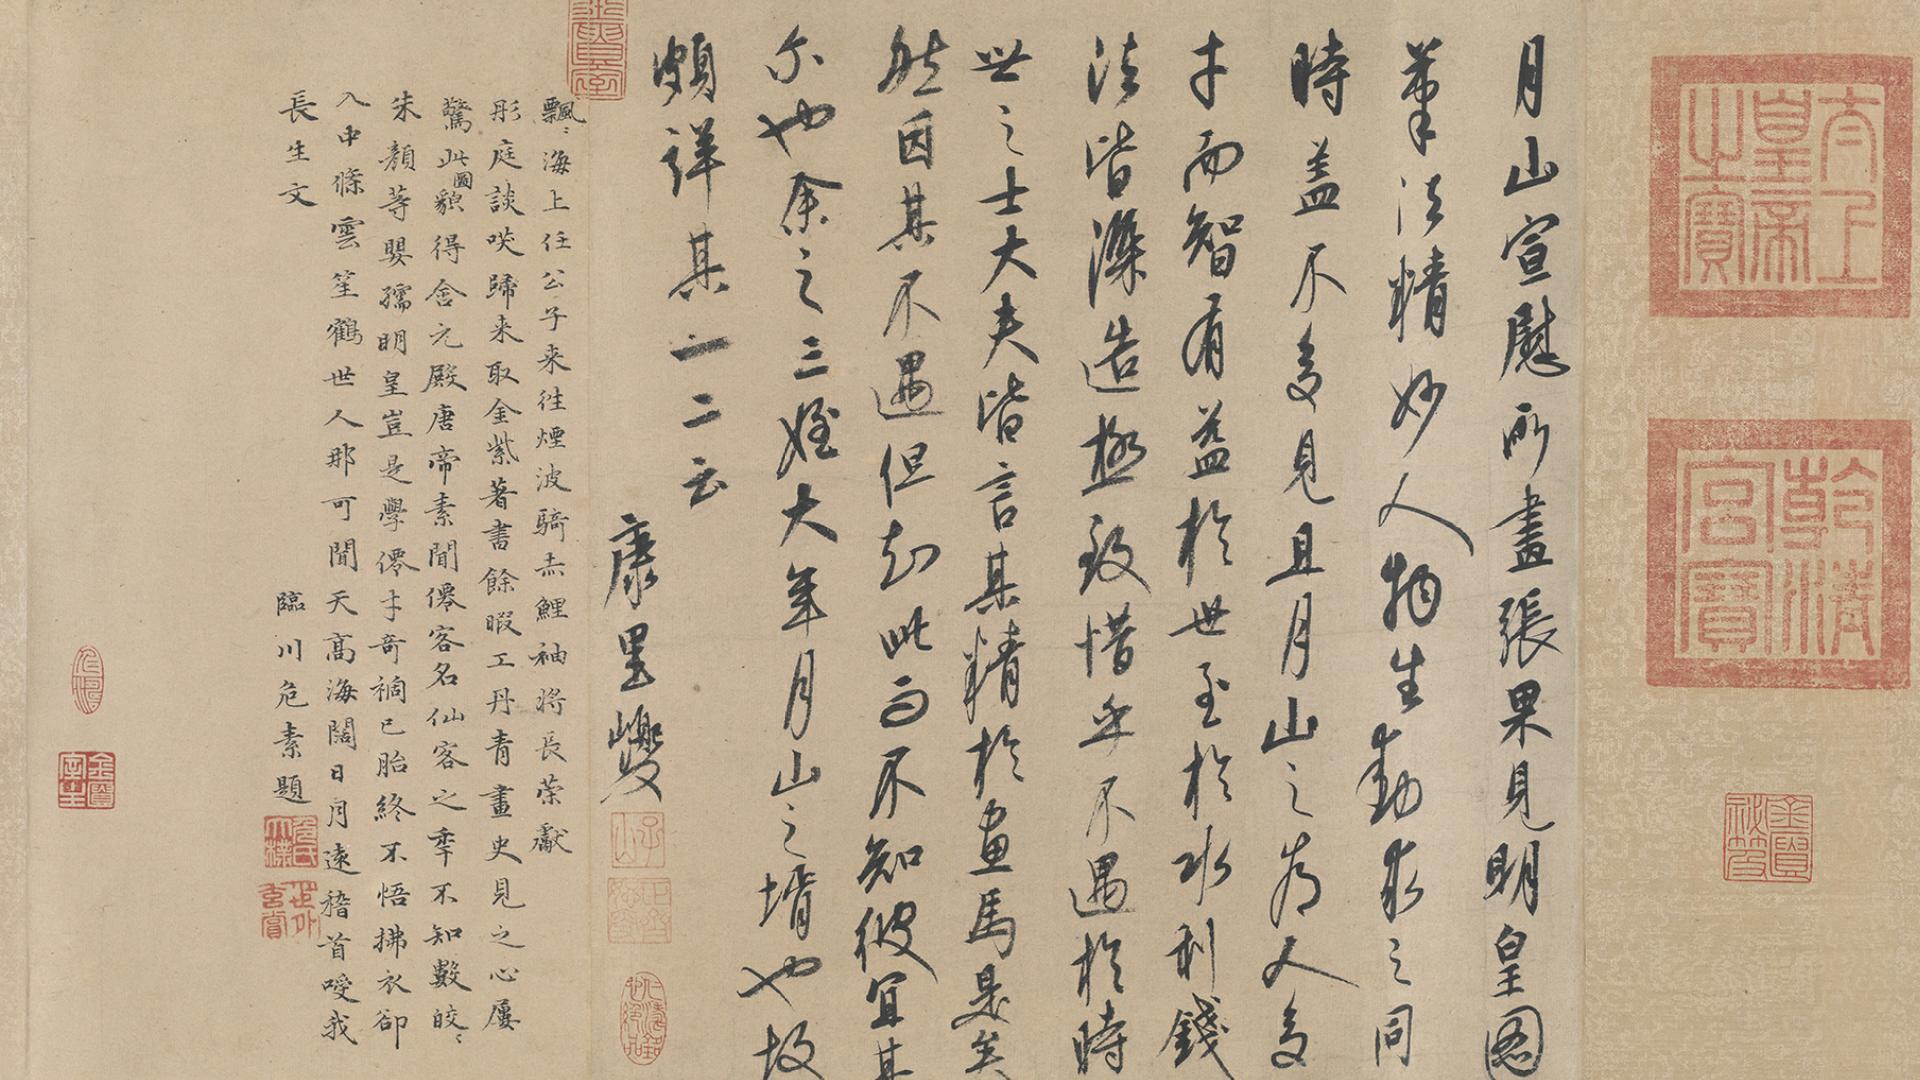 太上皇帝之寶
乾清宮寶
月山宣慰所畫張果見明皇圖
筆法精妙人物生動求之同
時蓋不多見且月山之為人多
才而智有益於世至於水利錢
法皆深造極致惜乎不遇於時
世之士大夫皆言其精於畫馬是矣
然因其不遇但知此而不知彼宜其
尔也余之三姪大年月山之壻也故
頗詳其一二云
康里巙
飄〻海上任公子来往煙波騎赤鯉袖將長策獻
彤庭談咲歸来取金紫著書餘暇工丹青畫史見之心屢
驚此圖貌得含元殿唐帝素聞僊客名仙客之季不知數皎〻
朱顏等嬰孺明皇豈是學僊才奇禍已胎終不悟拂衣卻
入中條雲笙鶴世人那可聞天高海闊日月遠稽首我
長生文
臨川危素題
危氏太樸